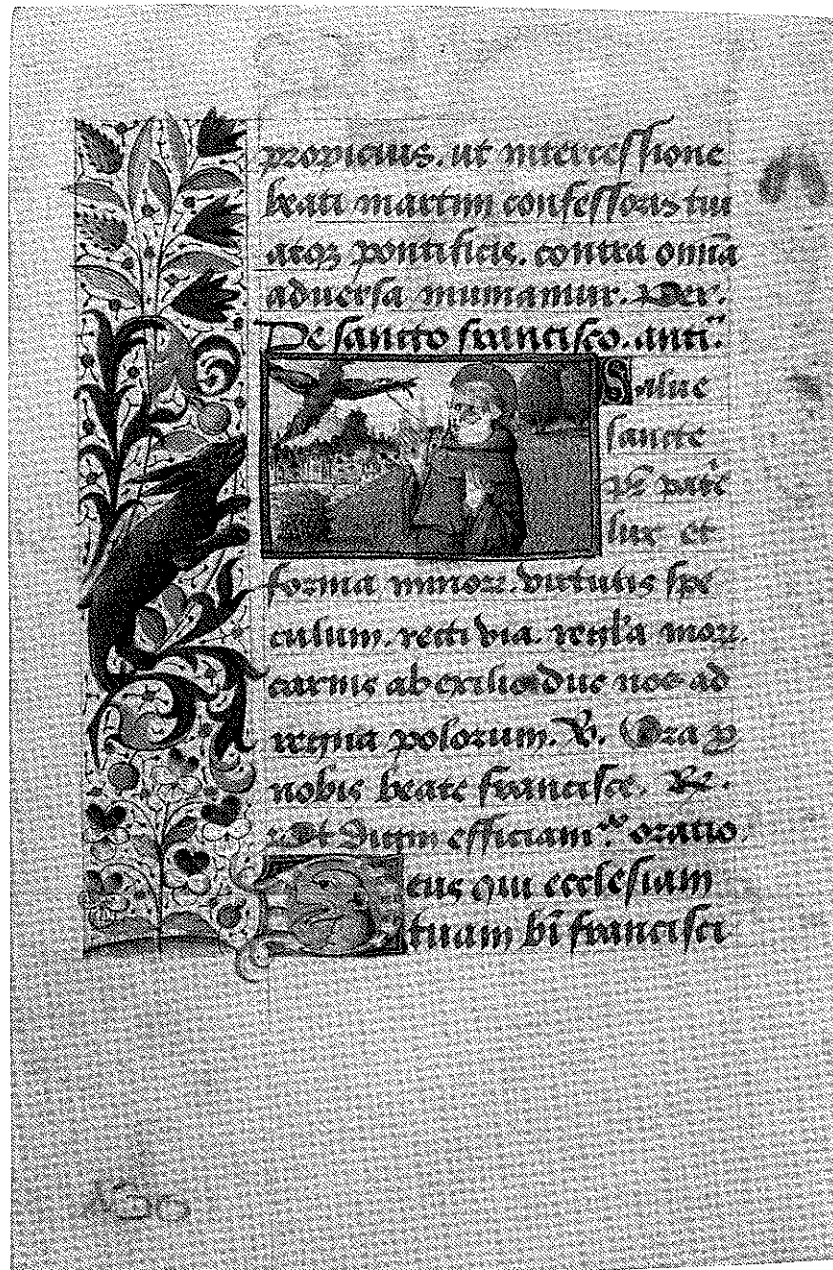 propicius. ut intercessione
beati martini confessoris tui
atqz pontificis. contra om̄ia
aduersa muniamur. Per.
De sancto francisco. anti.
Salue
sancte
pr̄ patīe
lux et
forma minorꝝ. virtutis spe
culum. recti via. regla morꝝ.
carnis ab exilio duc nos ad
regna polorum. V. Ora ꝓ
nobis beate francisce. R.
Vt digni efficiam oratio
Deus qui ecclesiam
tuam bī francisci